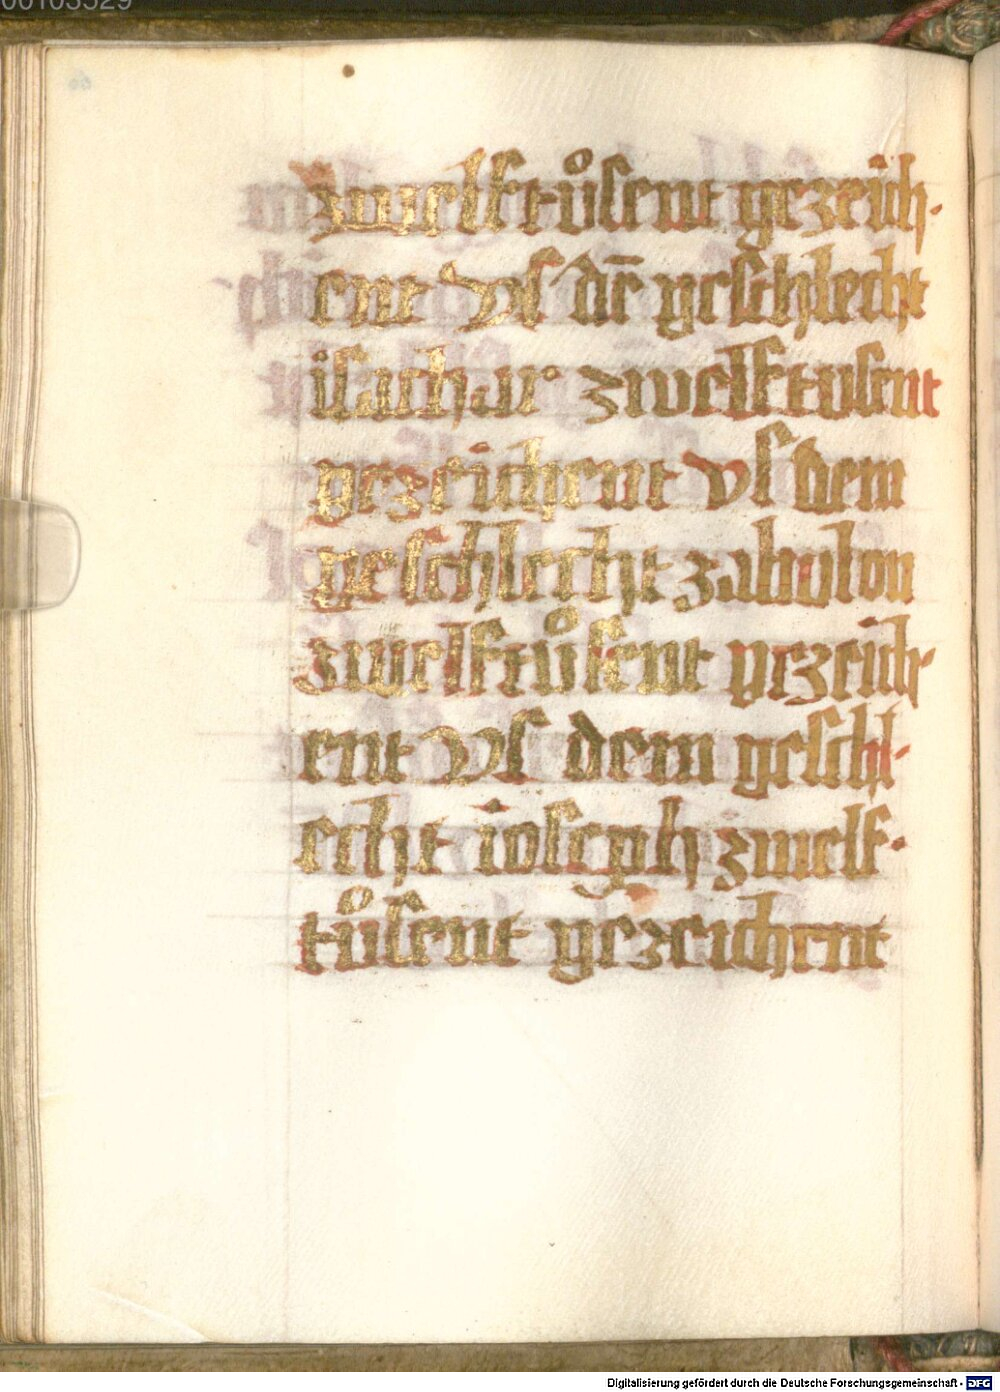 00103529
zwelftůsent gezeich-
ent vs dē geschlecht
isachar zwelftusent
gezeichent vs dem
geschlecht zabulon
zwelftůsent gezeich-
ent vs dem geschl-
echt ioseph zwelf-
tůsent gezeichent
Digitalisierung gefördert durch die Deutsche Forschungsgemeinschaft - DFG